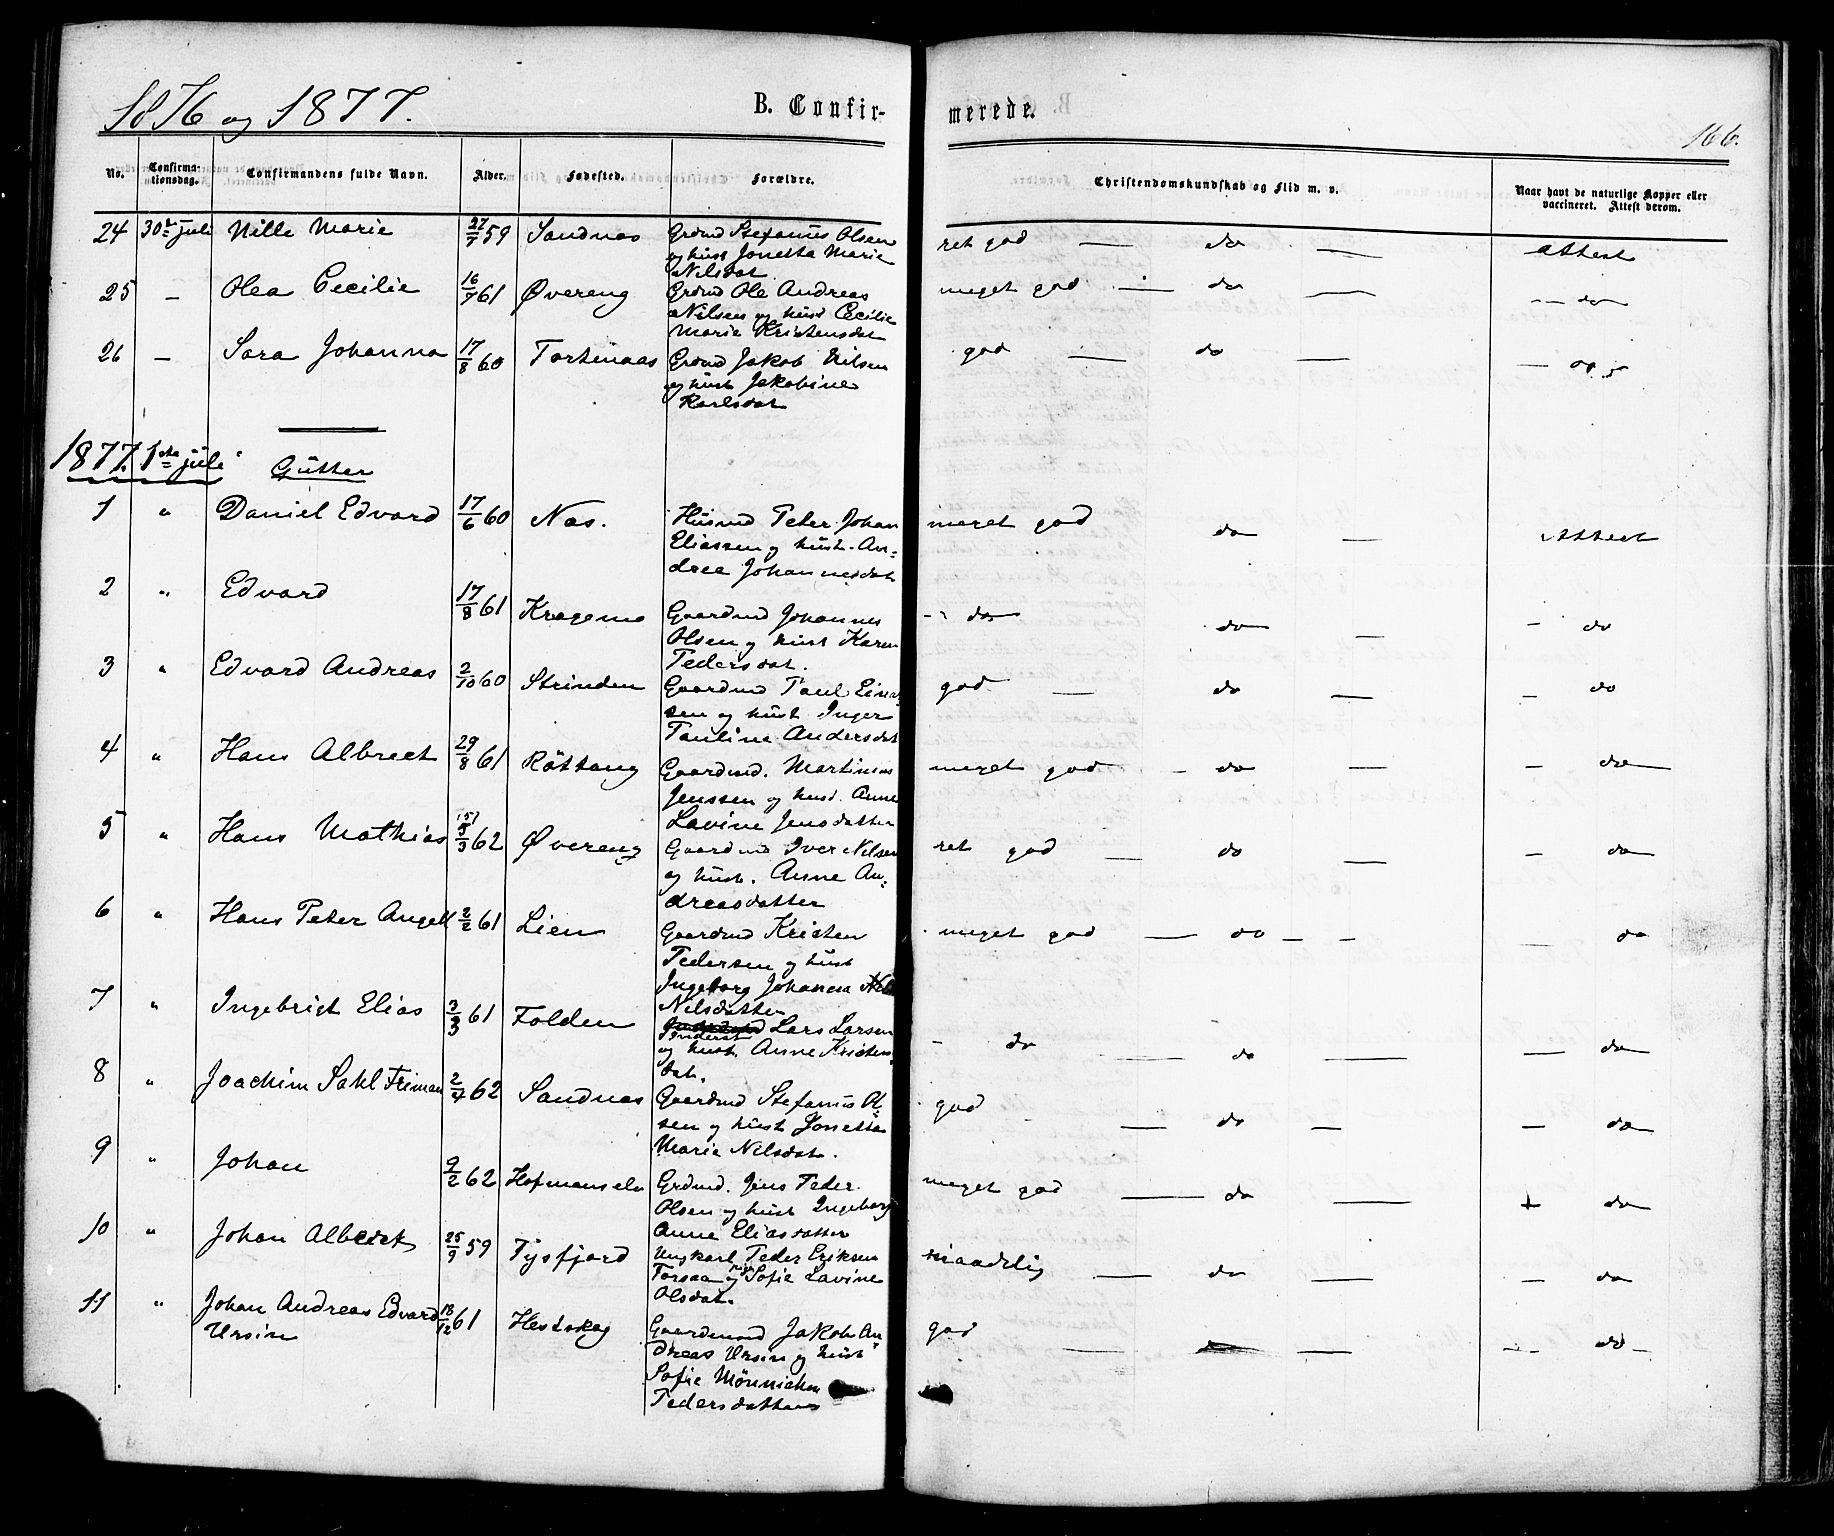 1876 og 1877.
B. Confir-
merede.
166.
No.
Confirma-
tionsdag.
Confirmandens fulde Navn.
Alder.
Fødested.
Forældre.
Christendomskundskab og Flid m. v.
Naar havt de naturlige Kopper eller
vaccineret. Attest derom.
24 30te juli Nille Marie 27/7 59 Sandnas Grdmd Stefanus Olsen
og hust Jonetta Marie
Nilsdat
ret god — do — attest
25 — Olea Cecilie 16/7 61 Øvereng Grdmd Ole Andreas
Nilsen og hust Cecilie
Marie Kristensdat
meget god — do — — do
26 — Sara Johanna 17/8 60 Tortenaas Grdmd Jakob Nilsen
og hust Jakobine
Karlsdat
god — do — — do
1877. 1ste juli Gutter
1 " Daniel Edvard 17/6 60 Nas. Husmd Peter Johan
Eliassen og hust. An-
drea Johannesdat
meget god do — Attest
2 " Edvard 17/8 61 Kragemo Gaardmd Johannes
Olsen og hust Karen
Pedersdat.
- do do — - do
3 " Edvard Andreas 2/10 60 Strinden Gaardmd Paul Einar
sen og hust. Inger
Pauline Andersdat
god — do — - do
4 " Hans Albrect 29/8 61 Röttang Gaardmd. Martinus
Jenssen og hust. Anne
Lavine Jensdatter
meget god - do — - do
5 " Hans Mathias 5/3 62 Øvereng Gaardmd Iver Nilsen
og hust. Anne An-
dreasdatter
ret god — do — - do
6 " Hans Peter Angell 2/2 61 Lien Gaardmd Kristen
Pedersen og hust
Ingeborg Johanna
Nilsdatter
meget god — do - - — do
7 " Ingebrigt Elias 3/3 61 Folden Inderst Lars Larsen
og hust. Anne Kristen-
dat.
- do — do — — do
8 " Joachim Sahl Friman 2/4 62 Sandnas Gaardmd Stefanus Ol-
sen og hust Jonetta
Marie Nilsdat.
god — do — - do
9 " Johan 9/2 62 Hofmanselv Grdmd. Jens Peder
Olsen og hust Ingeborg
Anne Eliasdatter
meget god — do — + do
10 " Johan Albert 25/9 59 Tysfjord Ungkarl Peder Eriksen
Torsaa og Sofie Lavine
Olsdat.
maadelig — do — - do
11 " Johan Andreas Edvard
Ursin 18/12 61 Hestskog Gaardmand Jakob An-
dreas Ursin og hust
Sofie Mönnichen
Pedersdatter
god — do — — do —